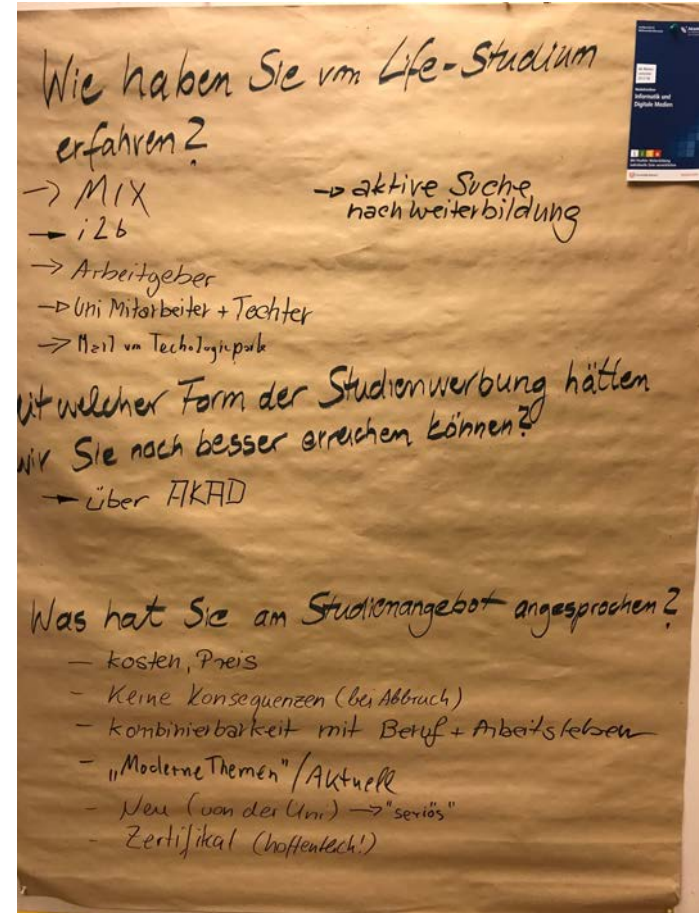 Wie haben Sie vom Life-Studium
erfahren?
→ MIX
→ i2b
→ Arbeitgeber
→ Uni Mitarbeiter + Tochter
→ Mail vom Techologiepark
→ aktive Suche
nach Weiterbildung
it welcher Form der Studienwerbung hätten
wir Sie noch besser erreichen können?
→ über AKAD
Was hat Sie am Studienangebot angesprochen?
– kosten, Preis
– Keine Konsequenzen (bei Abbruch)
– kombinierbarkeit mit Beruf + Arbeitsleben
– „Moderne Themen" / Aktuell
– Neu (von der Uni) → "seriös"
– Zertifikat (hoffentlich!)
Informatik und
Digitale Medien